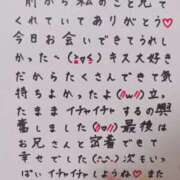 前から私のこと見て
くれていてありがとう♡
今日お会いできてうれし
かった〜(≧з≦)キス大好き
だからたくさんできて気
持ちよかったよ(//ω//)立っ
たままイチャイチャするの興
奮しました(//o//)最後は
お兄さんと密着できて
幸せでした(˶ᵔᵕᵔ˶)次もいっ
ぱいイチャイチャしようね♡また